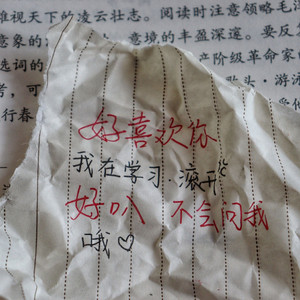 维视天下的凌云壮志。阅读时注意领略毛泽
意象的
意境的丰盈深邃。要反复
选词的
产阶级革命家的
苦,可
歌头·游泳
行春
好喜欢你
我在学习·滚开
好叭 不会问我
哦♡